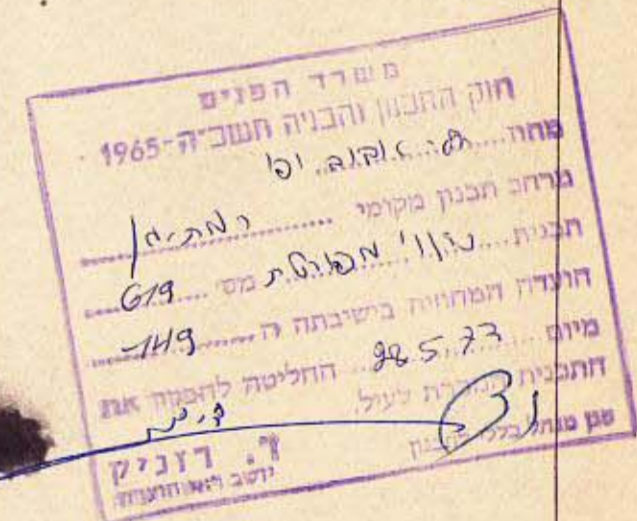 משרד הפנים
חוק התכנון והבניה תשכ״ה-1965
מחוז תל-אביב יפו
מרחב תכנון מקומי רמת-גן
תכנית מפורטת מס׳ 619
הועדה המחוזית בישיבתה ה 149
מיום 28.5.73 החליטה להפקיד את
התכנית הנזכרת לעיל.
סגן מנהל כללי לתכנון
יושב ראש הועדה